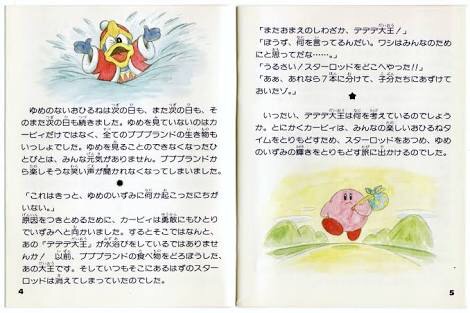 ゆめのないおひるねは次の日も、また次の日も、そ
のまた次の日も続きました。ゆめを見ないのはカ
ービィだけではなく、全てのプププランドの生き物も
いっしょでした。ゆめを見ることのできなくなったひ
とびとは、みんな元気がありません。プププランドか
ら楽しそうな笑い声が聞かれなくなってしまいました。
「これはきっと、ゆめのいずみに何か起こったにちが
いない。」
原因をつきとめるために、カービィは勇敢にもひとり
でいずみへと向かいました。するとそこではなんと、
あの“デデデ大王”が水浴びをしているではありませ
んか！ 以前、プププランドの食べ物をどろぼうした、
あの大王です。そしていつもそこにあるはずのスター
ロッドは消えてしまっていたのでした。
4
「またおまえのしわざか、デデデ大王！」
「ほうず、何を言ってるんだい。ワシはみんなのため
にと思ってだな……。」
「うるさい！スターロッドをどこへやった!!」
「ああ、あれなら7本に分けて、子分たちにあずけて
おいたゾ。」
★
いったい、デデデ大王は何を考えているのでしょう
か。とにかくカービィは、みんなの楽しいおひるねタ
イムをとりもどすため、スターロッドをあつめ、ゆめ
のいずみの輝きをとりもどす旅に出かけるのでした。
5